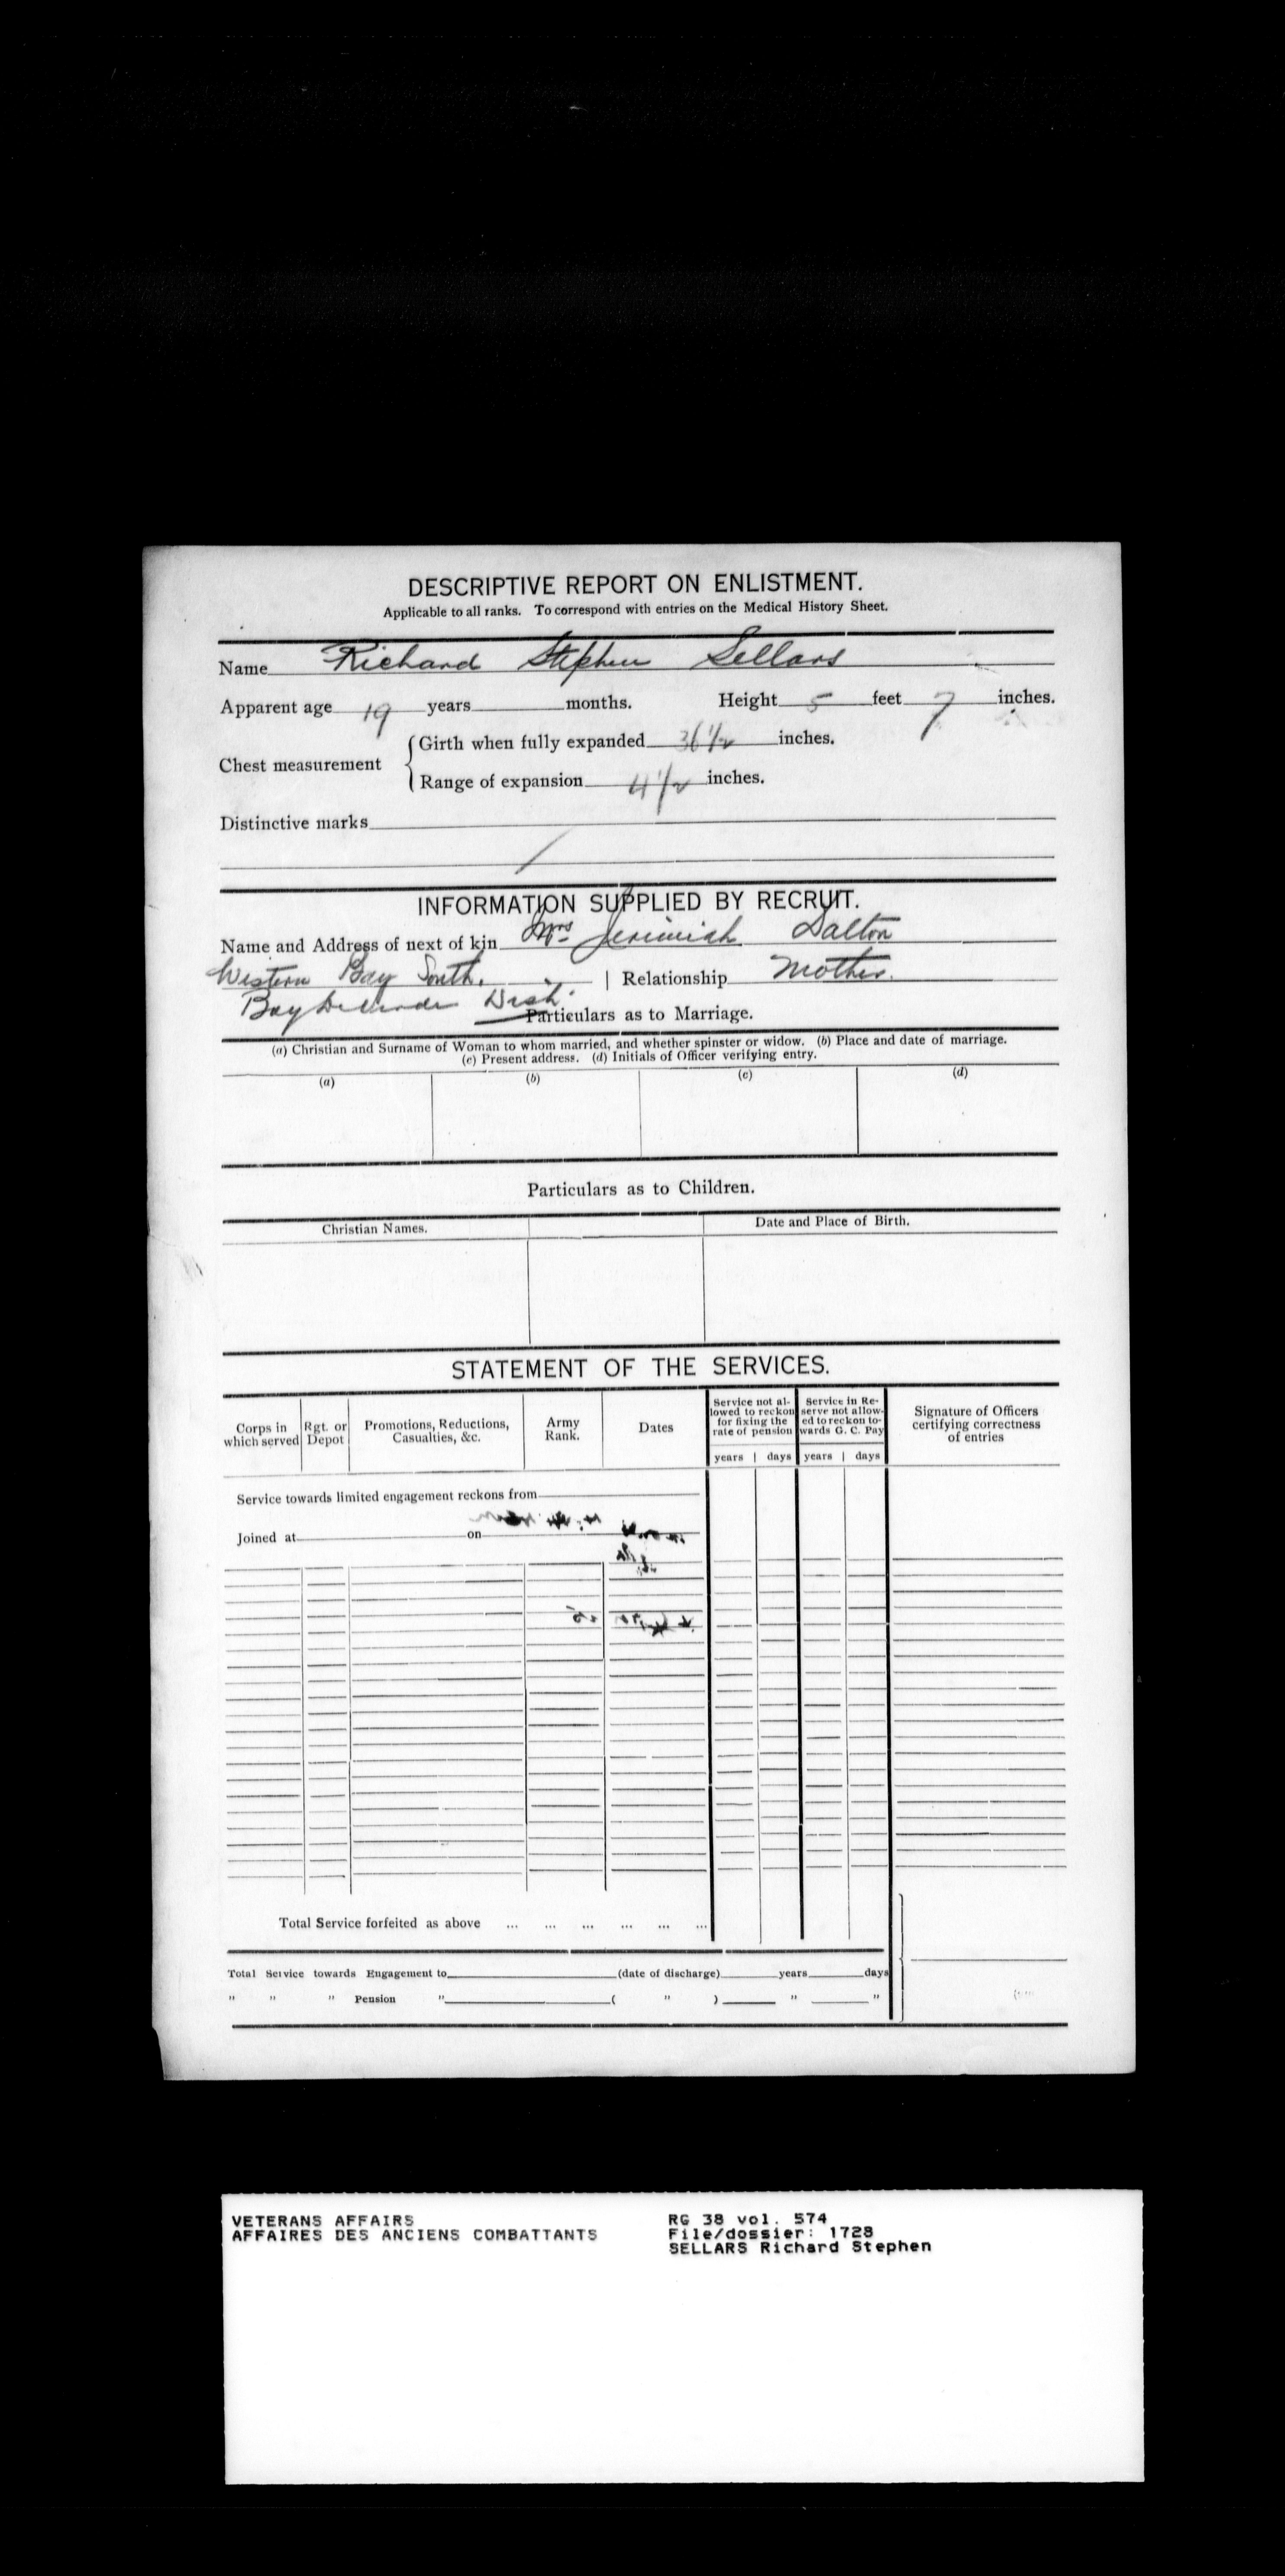 DESCRIPTIVE REPORT ON ENLISTMENT.
Applicable to all ranks. To correspond with entries on the Medical History Sheet.
Name Richard Stephen Sellars
Apparent age 19 years months. Height 5 feet 7 inches.
Chest measurement { Girth when fully expanded 36 1/2 inches.
Range of expansion 4 1/2 inches.
Distinctive marks /
INFORMATION SUPPLIED BY RECRUIT.
Name and Address of next of kin Mrs Jerimiah Dalton
Western Bay South. | Relationship Mother.
Bay Dist.
Particulars as to Marriage.
(a) Christian and Surname of Woman to whom married, and whether spinster or widow. (b) Place and date of marriage.
(c) Present address. (d) Initials of Officer verifying entry.
(a) (b) (c) (d)
Particulars as to Children.
Christian Names. Date and Place of Birth.
STATEMENT OF THE SERVICES.
Corps in which served Rgt. or Depot Promotions, Reductions, Casualties, &c. Army Rank. Dates Service not allowed to reckon for fixing the rate of pension Service in Reserve not allowed to reckon towards G. C. Pay Signature of Officers certifying correctness of entries
years | days years | days
Service towards limited engagement reckons from
Joined at on
Total Service forfeited as above ... ... ... ... ... ...
Total Service towards Engagement to (date of discharge) years days
" " " Pension " ( " ) " "
VETERANS AFFAIRS RG 38 vol. 574
AFFAIRES DES ANCIENS COMBATTANTS File/dossier: 1728
SELLARS Richard Stephen